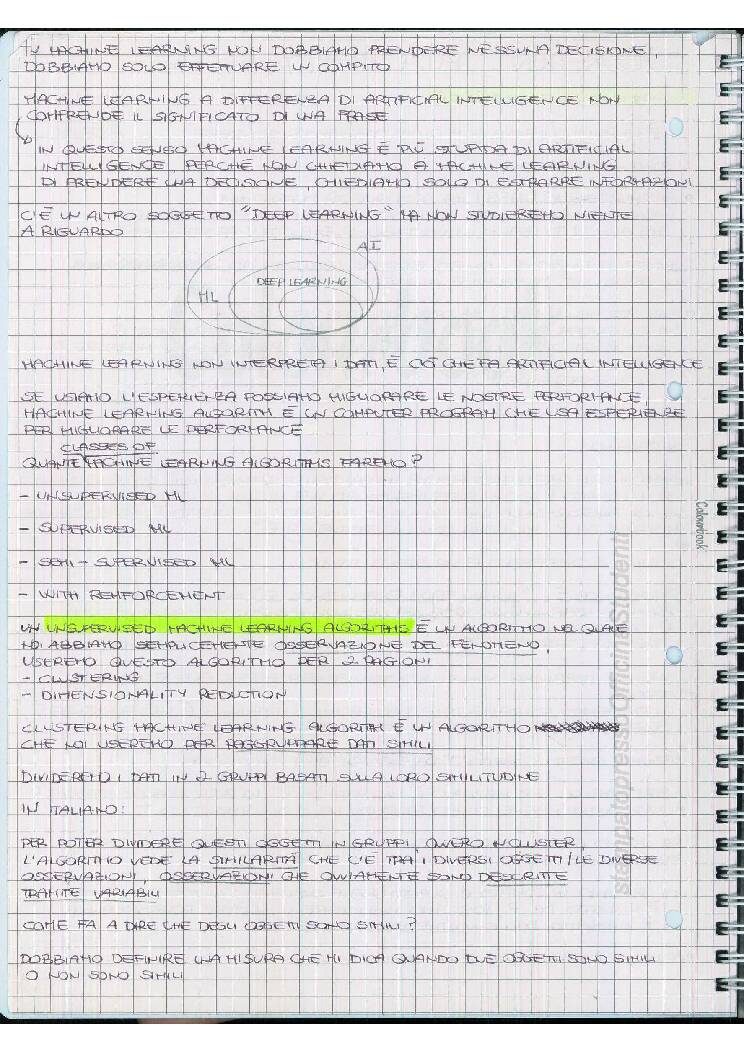 IN MACHINE LEARNING NON DOBBIAMO PRENDERE NESSUNA DECISIONE,
DOBBIAMO SOLO EFFETTUARE UN COMPITO
MACHINE LEARNING A DIFFERENZA DI ARTIFICIAL INTELLIGENCE NON
COMPRENDE IL SIGNIFICATO DI UNA FRASE
IN QUESTO SENSO MACHINE LEARNING È PIÙ STUPIDA DI ARTIFICIAL
INTELLIGENCE, PERCHÉ NON CHIEDIAMO A MACHINE LEARNING
DI PRENDERE UNA DECISIONE, CHIEDIAMO SOLO DI ESTRARRE INFORMAZIONI
C'È UN ALTRO SOGGETTO "DEEP LEARNING" MA NON STUDIEREMO NIENTE
A RIGUARDO
AI
DEEP LEARNING
ML
MACHINE LEARNING NON INTERPRETA I DATI, È CIÒ CHE FA ARTIFICIAL INTELLIGENCE
SE USIAMO L'ESPERIENZA POSSIAMO MIGLIORARE LE NOSTRE PERFORMANCE,
MACHINE LEARNING ALGORITHM È UN COMPUTER PROGRAM CHE USA ESPERIENZE
PER MIGLIORARE LE PERFORMANCE
CLASSES OF
QUANTE MACHINE LEARNING ALGORITHMS FAREMO?
- UNSUPERVISED ML
- SUPERVISED ML
- SEMI-SUPERVISED ML
- WITH REINFORCEMENT
UN UNSUPERVISED MACHINE LEARNING ALGORITHMS È UN ALGORITMO NEL QUALE
NOI ABBIAMO SEMPLICEMENTE OSSERVAZIONE DEL FENOMENO,
USEREMO QUESTO ALGORITMO PER 2 RAGIONI
- CLUSTERING
- DIMENSIONALITY REDUCTION
CLUSTERING MACHINE LEARNING ALGORITHM È UN ALGORITMO
CHE NOI USEREMO PER RAGGRUPPARE DATI SIMILI
DIVIDEREMO I DATI IN 2 GRUPPI BASATI SULLA LORO SIMILITUDINE
IN ITALIANO:
PER POTER DIVIDERE QUESTI OGGETTI IN GRUPPI, OVVERO IN CLUSTER,
L'ALGORITMO VEDE LA SIMILARITÀ CHE C'È TRA I DIVERSI OGGETTI/LE DIVERSE
OSSERVAZIONI, OSSERVAZIONI CHE OVVIAMENTE SONO DESCRITTE
TRAMITE VARIABILI
COME FA A DIRE CHE DEGLI OGGETTI SONO SIMILI?
DOBBIAMO DEFINIRE UNA MISURA CHE MI DICA QUANDO DUE OGGETTI SONO SIMILI
O NON SONO SIMILI
Colourbook
stampatopress OfficinaStudenti